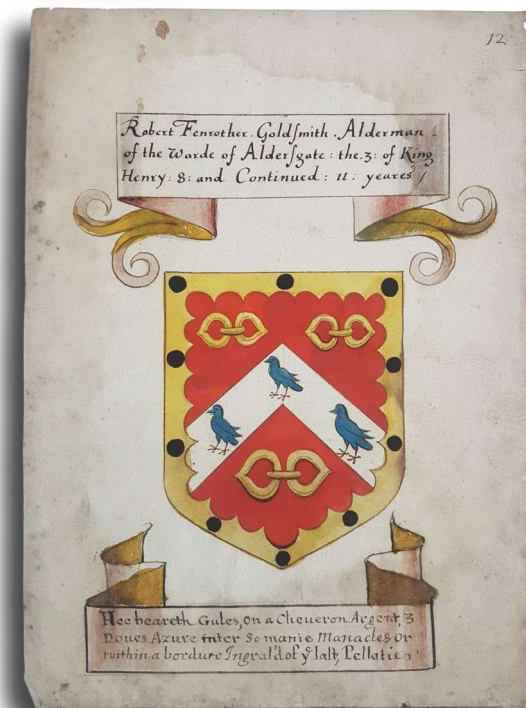 12
Robert Fenrother. Goldſmith. Alderman
of the Warde of Alderſgate: the.3: of King
Henry: 8: and Continued: 11: yeares /
Hee beareth Gules, on a Cheueron Argent, 3
Doues Azure inter So manie Manacles Or
within a bordure Ingral'd of yͤ laſt, Pelletie: